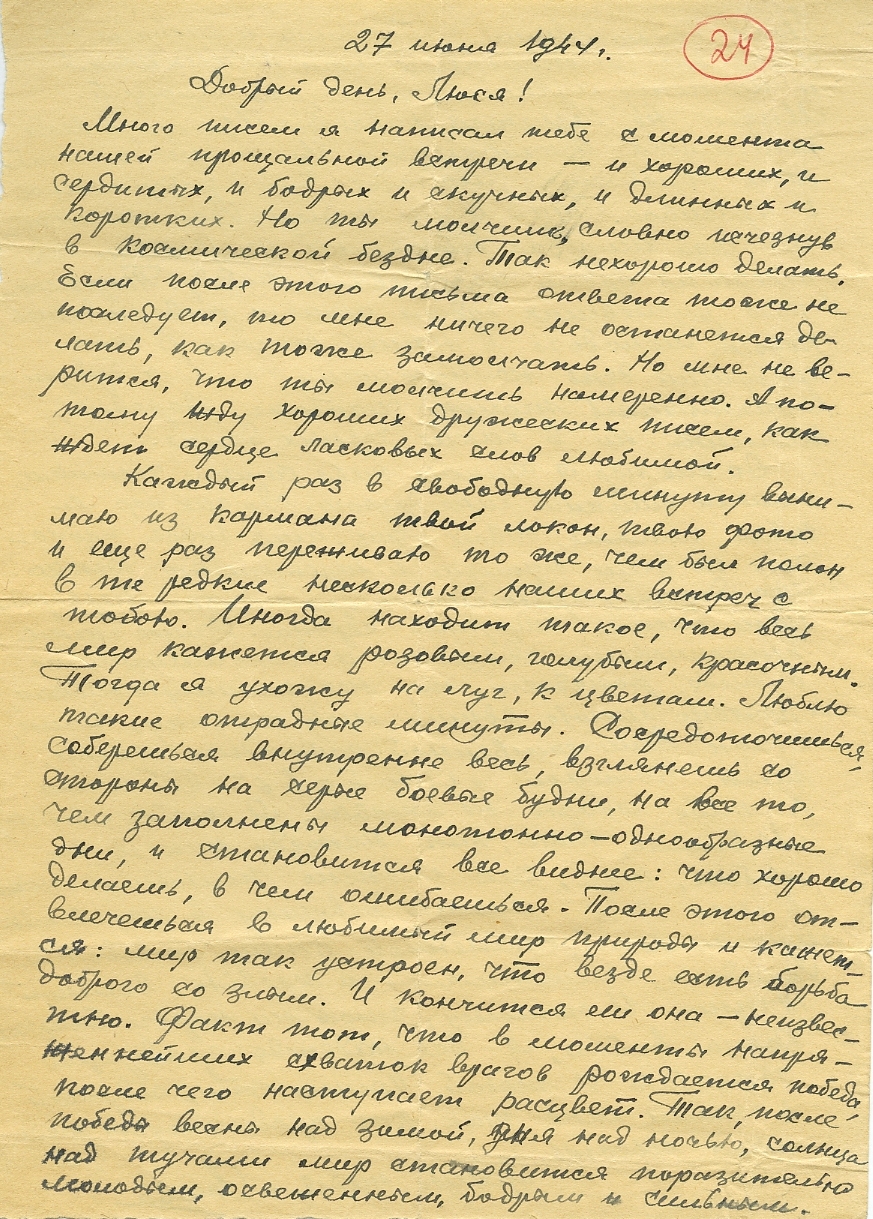 27 июня 1944 г.
24
Добрый день, Люся!
Много писем я написал тебе с момента
нашей прощальной встречи — и хороших, и
сердитых, и бодрых и скучных, и длинных и
коротких. Но ты молчишь, словно исчезнув
в космической бездне. Так нехорошо делать.
Если после этого письма ответа тоже не
последует, то мне ничего не останется де-
лать, как тоже замолчать. Но мне не ве-
рится, что ты молчишь намеренно. А по-
тому жду хороших дружеских писем, как
ждет сердце ласковых слов любимой.
Каждый раз в свободную минуту выни-
маю из кармана твой локон, твою фото
и еще раз переживаю то же, чем был полон
в те редкие несколько наших встреч с
тобою. Иногда находит такое, что весь
мир кажется розовым, голубым, красочным.
Тогда я ухожу на луг, к цветам. Люблю
такие отрадные минуты. Сосредоточишься,
соберешься внутренне весь, взглянешь со
стороны на серые боевые будни, на все то,
чем заполнены монотонно-однообразные
дни, и становится все виднее: что хорошо
делаешь, в чем ошибаешься. После этого от-
влечешься в любимый мир природы и кажет-
ся: мир так устроен, что везде есть борьба
доброго со злым. И кончится ли она — неизвес-
тно. Факт тот, что в моменты напря-
женнейших схваток врагов рождается победа,
после чего наступает расцвет. Так, после
победы весны над зимой, дня над ночью, солнца
над тучами мир становится поразительно
молодым, освеженным, бодрым и сильным.